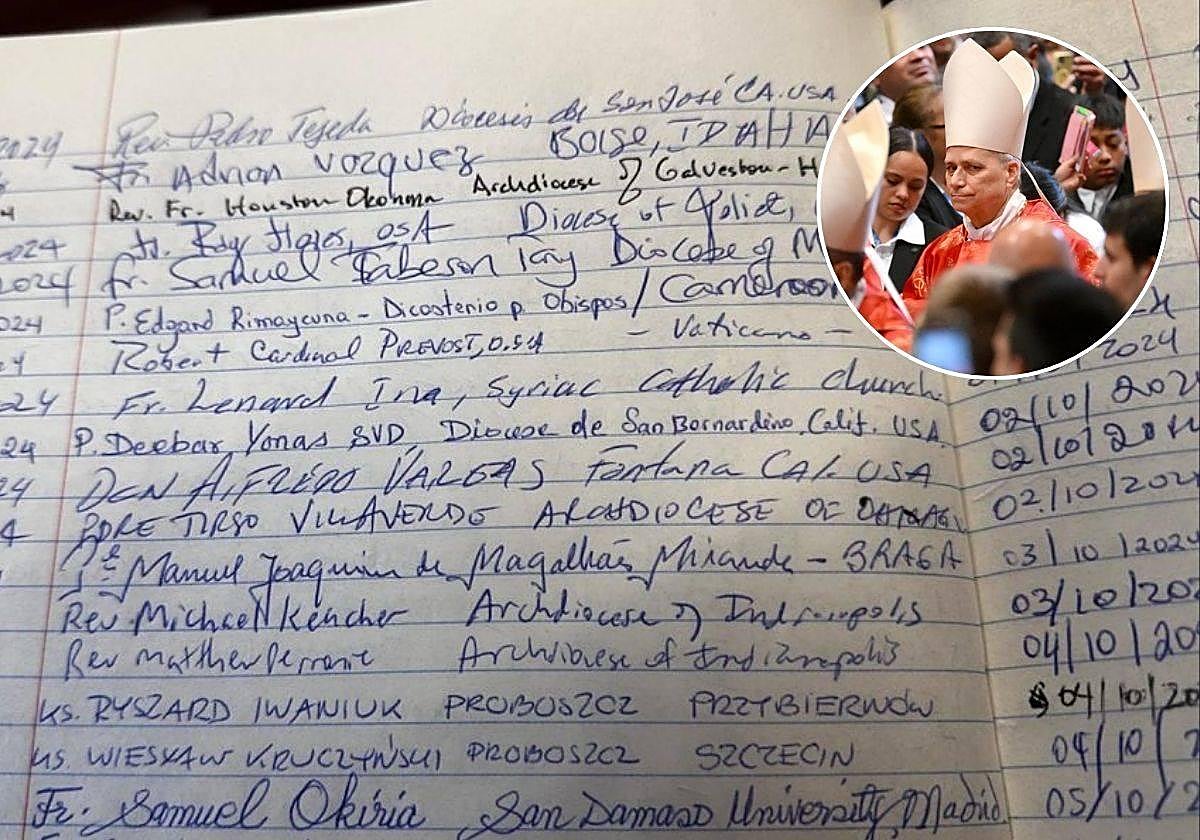 2024 Rev. Pedro Tejeda Diócesis de San José CA. USA
Fr. Adrian Vazquez BOISE, IDAHO
4 Rev. Fr. Houston Okonma Archdiocese of Galveston - H
2024 Fr. Ray Flores, OSA Diocese of Joliet,
2024 fr. Samuel Diocese of M
024 P. Edgard Rimaycuna - Dicasterio p. Obispos / Cameroon
24 Robert Cardinal PREVOST, O.S.A - Vaticano - 2024
24 Fr. Lenard Ina, Syriac Catholic church. 02/10/202
24 P. Deebar Yonas SVD, Diocese de San Bernardino, Calif. USA 02/10/2024
24 DCN ALFREDO VARGAS Fontana CAL. USA 02/10/202
4 PDRE TIRSO VILLAVERDE ARCHDIOCESE OF
Pe Manuel Joaquim de Magalhães Miranda - BRAGA 03/10/2024
Rev Michael Keucher Archdiocese of Indianapolis 03/10/202
Rev Matthew Perronie Archdiocese of Indianapolis 04/10/20
KS. RYSZARD IWANIUK PROBOSZCZ PRZYBIERNÓW 04/10/20
KS. WIESŁAW KRUCZYŃSKI PROBOSZCZ SZCZECIN 04/10/2
Fr. Samuel Okiria San Damaso University, Madrid 05/10/2